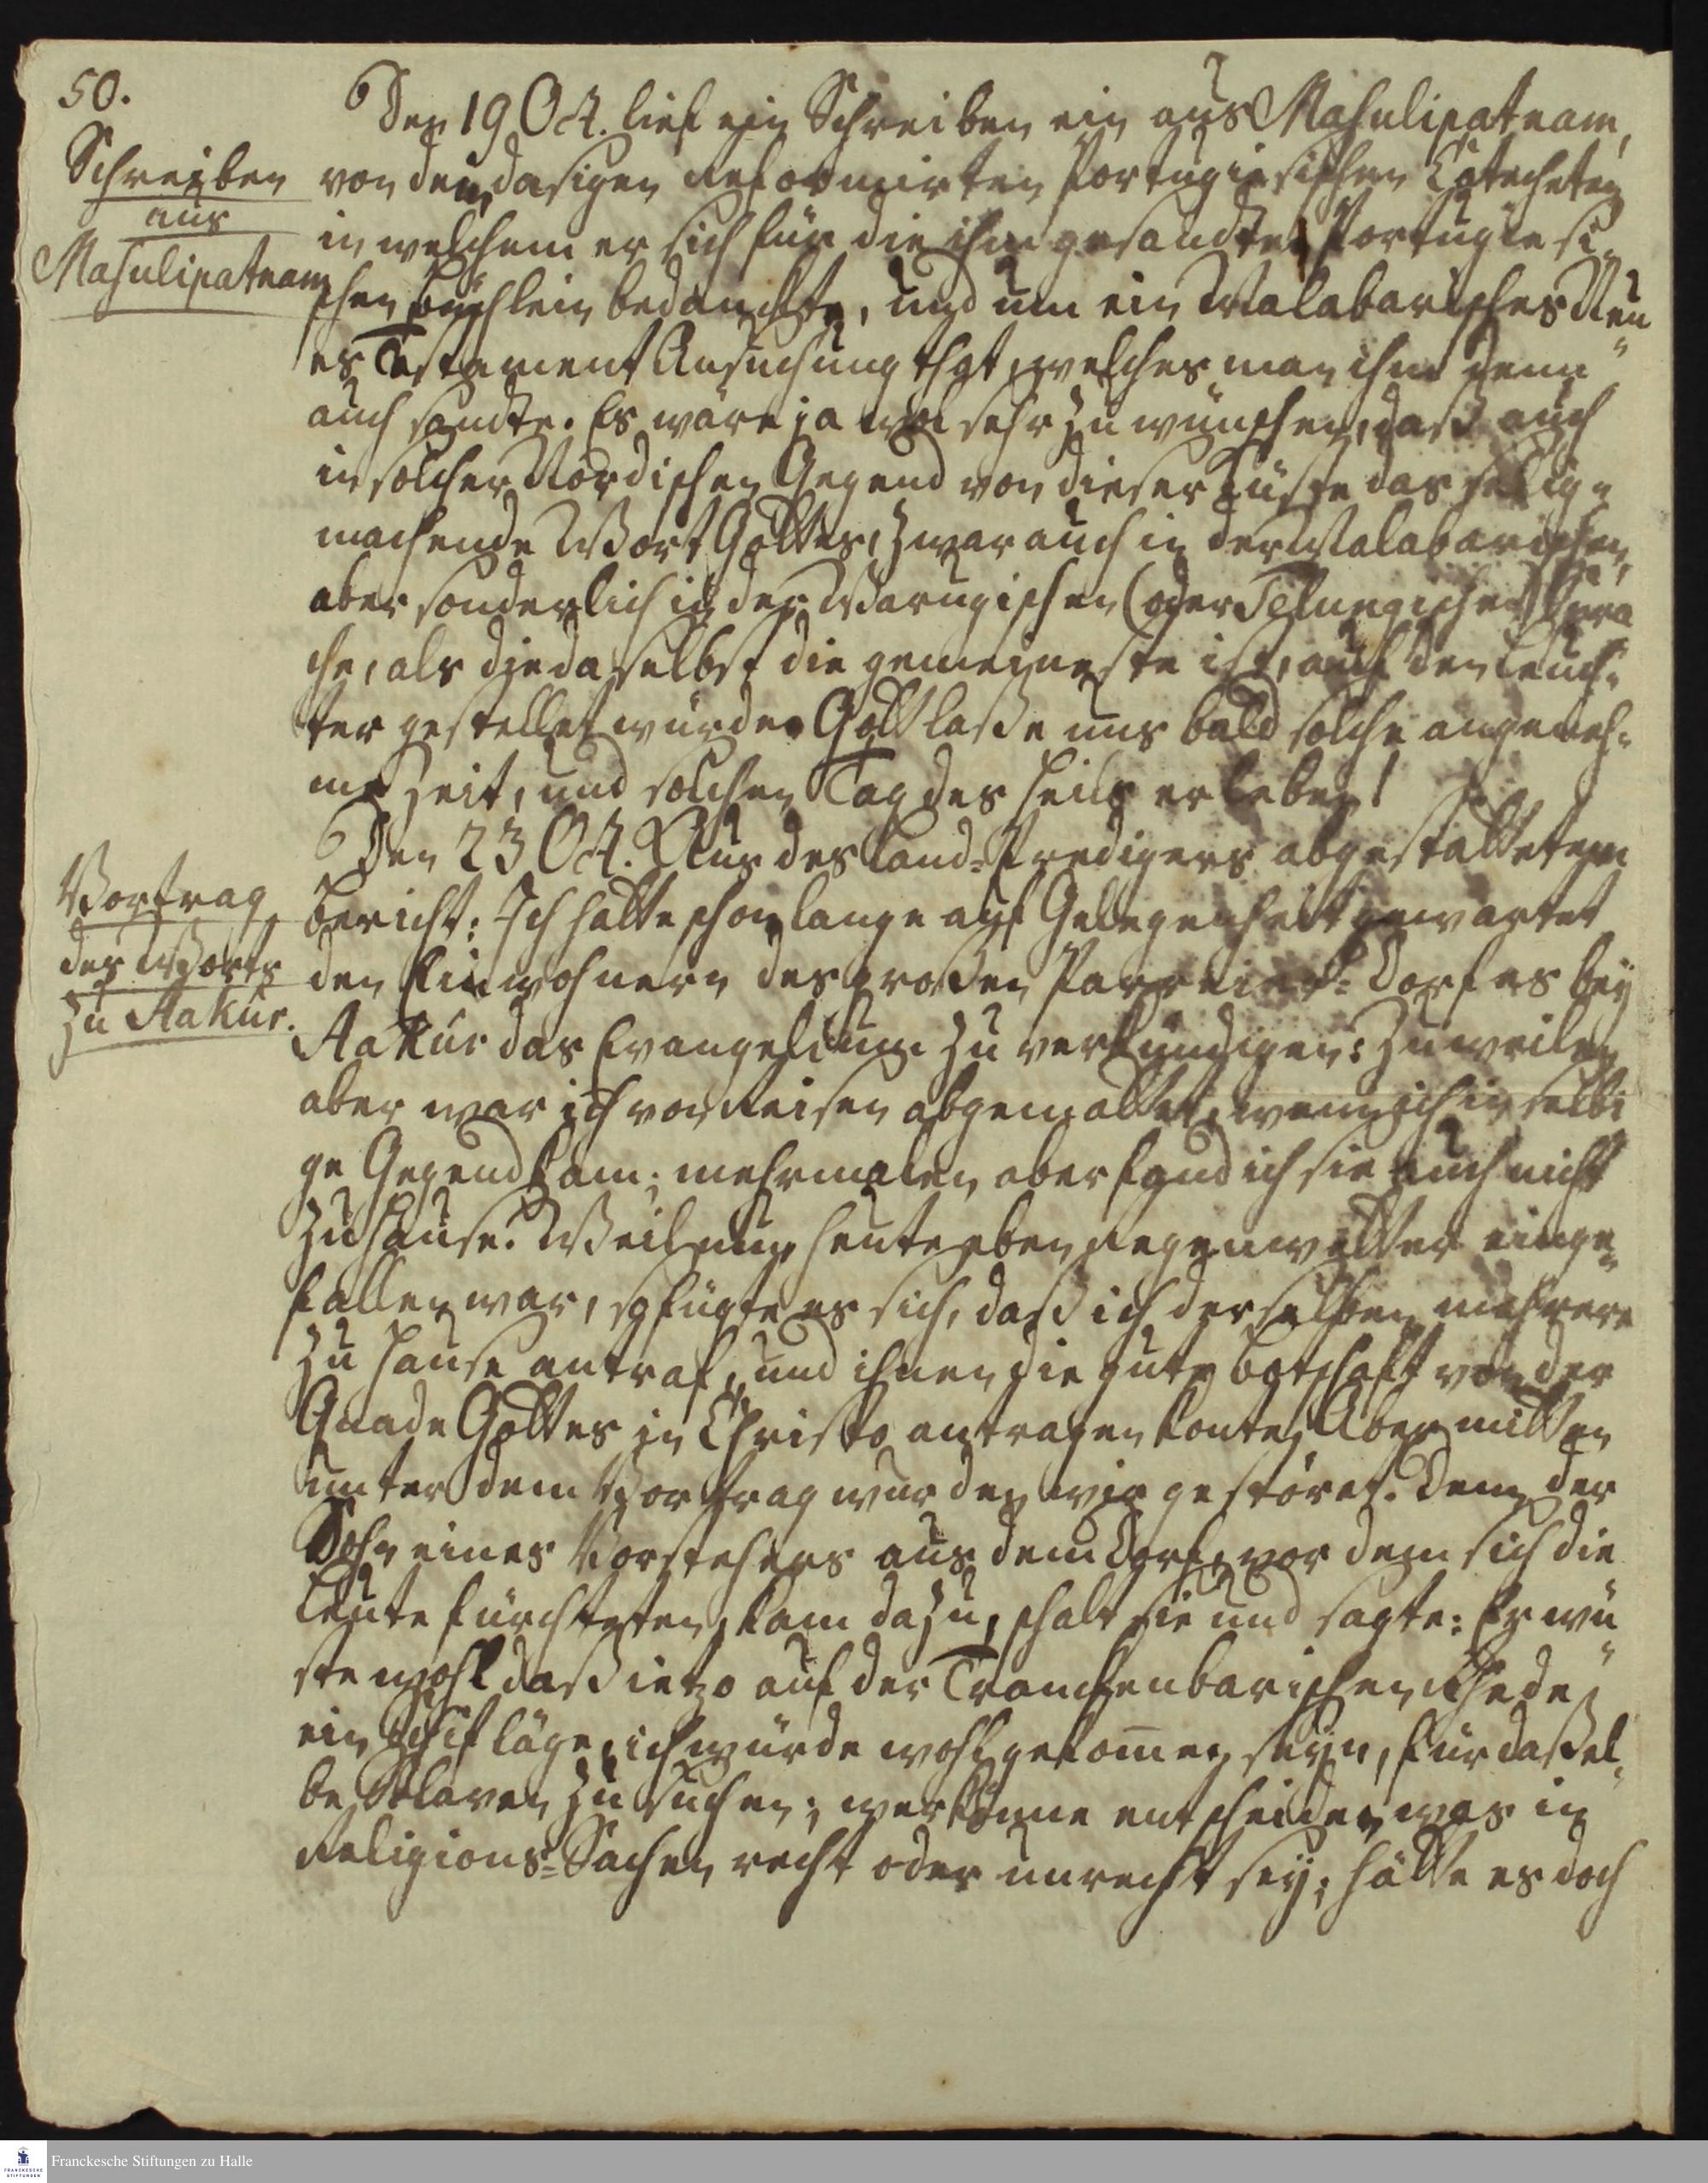 50.
Schreiben
aus
Masulipatnam
Den 19 Oct. lief ein Schreiben ein aus Masulipatnam,
von dem dasigen reformirten Portugiesischen Catecheten
in welchem er sich für die ihm gesandten Portugiesi-
schen Büchlein bedanckte, und um ein Malabarisches Neu
es Testament Ansuchung that, welches man ihm denn
auch sandte. Es wäre ja wol sehr zu wünschen, daß auch
in solcher Nordischen Gegend von dieser Küste das selig-
machende Wort Gottes, zwar auch in der Malabarischen,
aber sonderlich in der Warugischen (oder Telungischen) Spra
che, als die daselbst die gemeineste ist, auf den Leuch-
ter gestellet würde. Gott laße uns bald solche angeneh-
me Zeit, und solchen Tag des Heils erleben!
Vortrag
des Worts
zu Aakur.
Den 23 Oct. Aus des Land-Predigers abgestattetem
Bericht: Ich hatte schon lange auf Gelegenheit gewartet
den Einwohnern des großen Parreier-Dorfes bey
Aakur das Evangelium zu verkündigen: Zuweilen
aber war ich von Reisen abgemattet, wenn ich in selbi
ge Gegend kam; mehrmalen aber fand ich sie auch nicht
zu Hause. Weil nun heute eben Regenwetter einge-
fallen war, so fügte es sich, daß ich derselben mehrere
zu Hause antraf, und ihnen die gute Botschaft von der
Gnade Gottes in Christo antragen konte. Aber mitten
unter dem Vortrag wurden wir gestöret. Denn der
Sohn eines Vorstehers aus dem Dorf, vor dem sich die
Leute fürchteten, kam dazu, schalt sie und sagte: Er wü
ste wohl daß ietzo auf der Tranckenbarischen Rhede
ein Schif läge, ich würde wohl gekom̅en seyn, für daßel-
be Sclaven zu suchen; wer könne entscheiden was in
Religions-Sachen recht oder unrecht sey; hätte es doch
Franckesche Stiftungen zu Halle